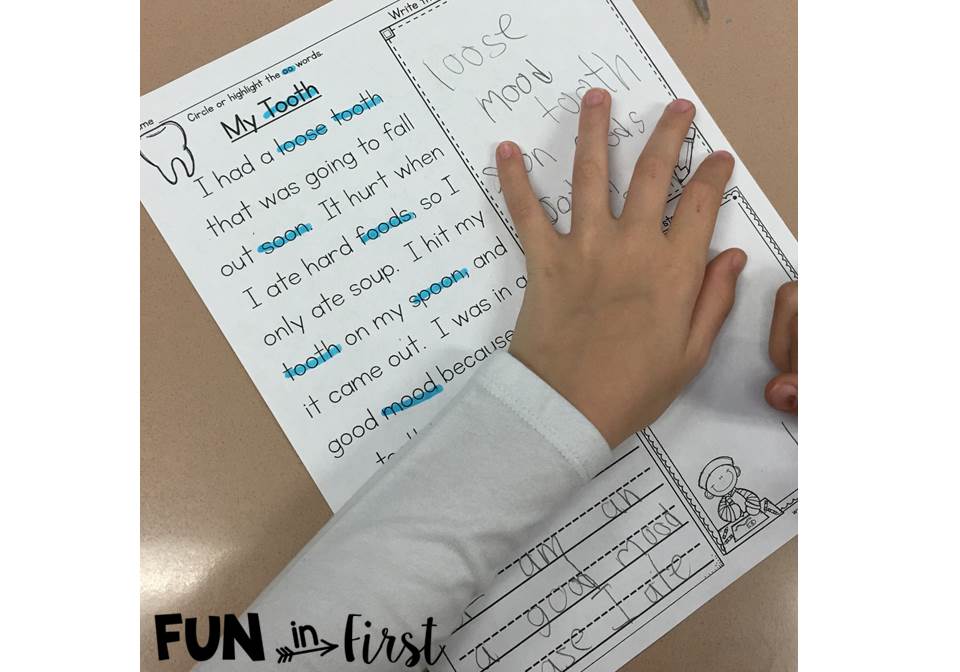 Circle or highlight the oo words.
My Tooth
I had a loose tooth
that was going to fall
out soon. It hurt when
I ate hard foods, so I
only ate soup. I hit my
tooth on my spoon, and
it came out. I was in a
good mood because
Write
loose
mood
tooth
am an
good mood
I ate
a
FUN in First